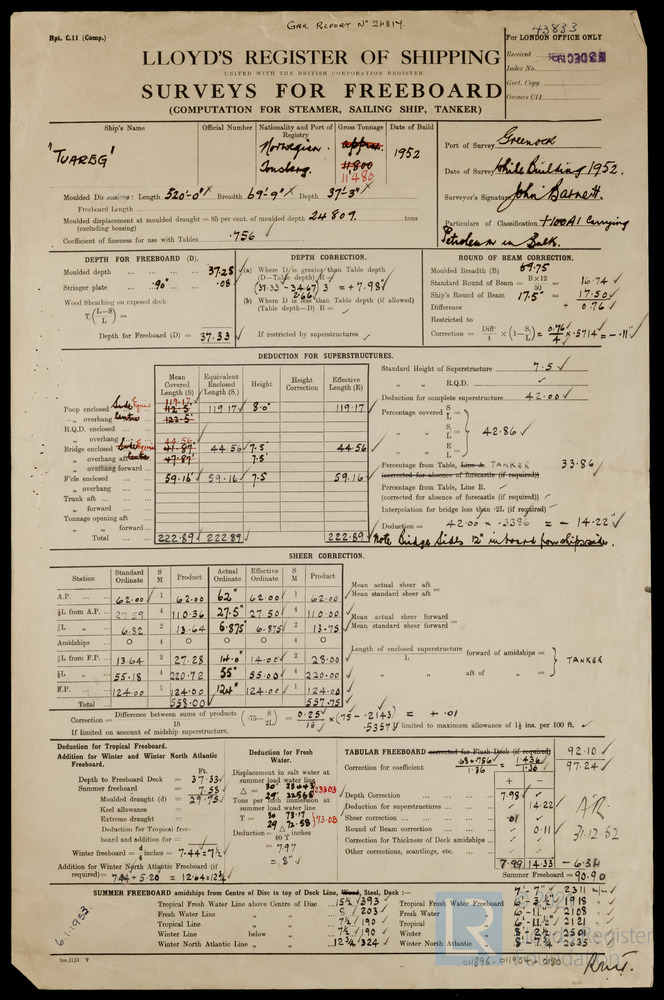 GRK REPORT No 24817
43833
Rpt. C.11 (Comp.)
For LONDON OFFICE ONLY
LLOYD'S REGISTER OF SHIPPING
UNITED WITH THE BRITISH CORPORATION REGISTER
SURVEYS FOR FREEBOARD
(COMPUTATION FOR STEAMER, SAILING SHIP, TANKER)
Received
Index No.
Govt. Copy
Owners C11
Ship's Name
Official Number
Nationality and Port of Registry
Gross Tonnage
Date of Build
'TUAREG'
Norwegian.
Tonsberg.
approx.
11800
11480
1952
Port of Survey Greenock
Date of Survey While Building 1952.
Surveyor's Signature John Barnett.
Particulars of Classification +100A1 Carrying
Petroleum in Bulk.
Moulded Dimensions: Length 520'-0" Breadth 69'-9" Depth 37'-3"
Freeboard Length
Moulded displacement at moulded draught = 85 per cent. of moulded depth 24807. tons
(excluding bossing)
Coefficient of fineness for use with Tables .756
DEPTH FOR FREEBOARD (D).
Moulded depth ... 37.25
Stringer plate ... .90" .08
Wood Sheathing on exposed deck
T (L–S/L) =
Depth for Freeboard (D) = 37.33
DEPTH CORRECTION.
(a) Where D is greater than Table depth
(D—Table depth) R =
(37.33 - 34.67) 3 = +7.98"
2.66
(b) Where D is less than Table depth (if allowed)
(Table depth—D) R =
If restricted by superstructures
ROUND OF BEAM CORRECTION.
Moulded Breadth (B) 69.75
Standard Round of Beam = B×12/50 = 16.74
Ship's Round of Beam 17.5" = 17.50
Difference + 0.76
Restricted to
Correction = Diff/4 × (1–S/L) = 0.76/4 × .5714 = - .11"
DEDUCTION FOR SUPERSTRUCTURES.
Mean Covered Length (S)
Equivalent Enclosed Length (S₁)
Height
Height Correction
Effective Length (E)
Poop enclosed Side Equiv 119.17 112.5' 119.17 8.0' 119.17
„ overhang Centre 122.5'
R.Q.D. enclosed
„ overhang
Bridge enclosed Side Equiv 44.56 41.87' 44.56 7.5' 44.56
„ overhang aft Centre 47.87' 7.5'
„ overhang forward
F'cle enclosed 59.16 59.16 7.5' 59.16
„ overhang
Trunk aft
„ forward
Tonnage opening aft
„ „ forward
Total 222.89 222.89 222.89
Standard Height of Superstructure 7.5
„ „ R.Q.D.
Deduction for complete superstructure 42.00
Percentage covered S/L =
„ „ S₁/L = 42.86
„ „ E/L =
Percentage from Table, Line A. TANKER 33.86
(corrected for absence of forecastle (if required))
Percentage from Table, Line B.
(corrected for absence of forecastle (if required))
Interpolation for bridge less than ·2L (if required)
Deduction = 42.00 × .3386 = - 14.22"
Note Bridge Sides 12" inboard from shipside.
SHEER CORRECTION.
Station
Standard Ordinate
S M
Product
Actual Ordinate
Effective Ordinate
S M
Product
A.P. 62.00 1 62.00 62" 62.00 1 62.00
⅙L from A.P. 27.59 4 110.36 27.5" 27.50 4 110.00
⅓L „ 6.82 2 13.64 6.875" 6.875 2 13.75
Amidships 0 4 0 0 0 4 0
⅓L from F.P. 13.64 2 27.28 14.0" 14.00 2 28.00
⅙L „ 55.18 4 220.72 55" 55.00 4 220.00
F.P. 124.00 1 124.00 124" 124.00 1 124.00
Total 558.00 557.75
Mean actual sheer aft
Mean standard sheer aft =
Mean actual sheer forward
Mean standard sheer forward =
Length of enclosed superstructure forward of amidships =
L
„ „ aft of „ =
TANKER
Correction = Difference between sums of products/18 (·75–S/2L) = 0.25/18 × (.75 - .2143) = + .01
.5357
If limited on account of midship superstructure.
If limited to maximum allowance of 1½ ins. per 100 ft.
Deduction for Tropical Freeboard.
Addition for Winter and Winter North Atlantic Freeboard.
Ft.
Depth to Freeboard Deck = 37.33
Summer freeboard = 7.58
Moulded draught (d) = 29.75
Keel allowance =
Extreme draught =
Deduction for Tropical freeboard and addition for =
Winter freeboard = d/4 inches = 7.44 = 7½"
Addition for Winter North Atlantic Freeboard (if required) = 7.44 + 5.20 = 12.64 = 12¾"
Deduction for Fresh Water.
Displacement in salt water at summer load water line
Δ = 30' 23045
29' 22565
23303
Tons per inch immersion at summer load water line
T = 30 73.17
29 72.58
73.03
Deduction = Δ/40 T inches
= 7.97
= 8"
TABULAR FREEBOARD corrected for Flush Deck (if required) 92.10
Correction for coefficient .68+.756/1.36 = 1.436/1.36 97.24
+ –
Depth Correction 7.98
Deduction for superstructures 14.22
Sheer correction .01
Round of Beam correction 0.11
Correction for Thickness of Deck amidships
Other corrections, scantlings, etc.
7.99 14.33 - 6.34
Summer Freeboard = 90.90
31.12.52
SUMMER FREEBOARD amidships from Centre of Disc to top of Deck Line, Wood, Steel, Deck :— 7'-7" 2311
Tropical Fresh Water Line above Centre of Disc 15½ 393
Fresh Water Line „ „ 8 203
Tropical Line „ „ 7½ 190
Winter Line below „ 7½ 190
Winter North Atlantic Line „ „ 12¾ 324
Tropical Fresh Water Freeboard 6'-3½" 1918
Fresh Water „ 6'-11" 2108
Tropical „ 6'-11½" 2121
Winter „ 8'-2½" 2501
Winter North Atlantic „ 8'-7¾" 2635
6.1.1953
5m,11,51. T.
011896-011904-0180